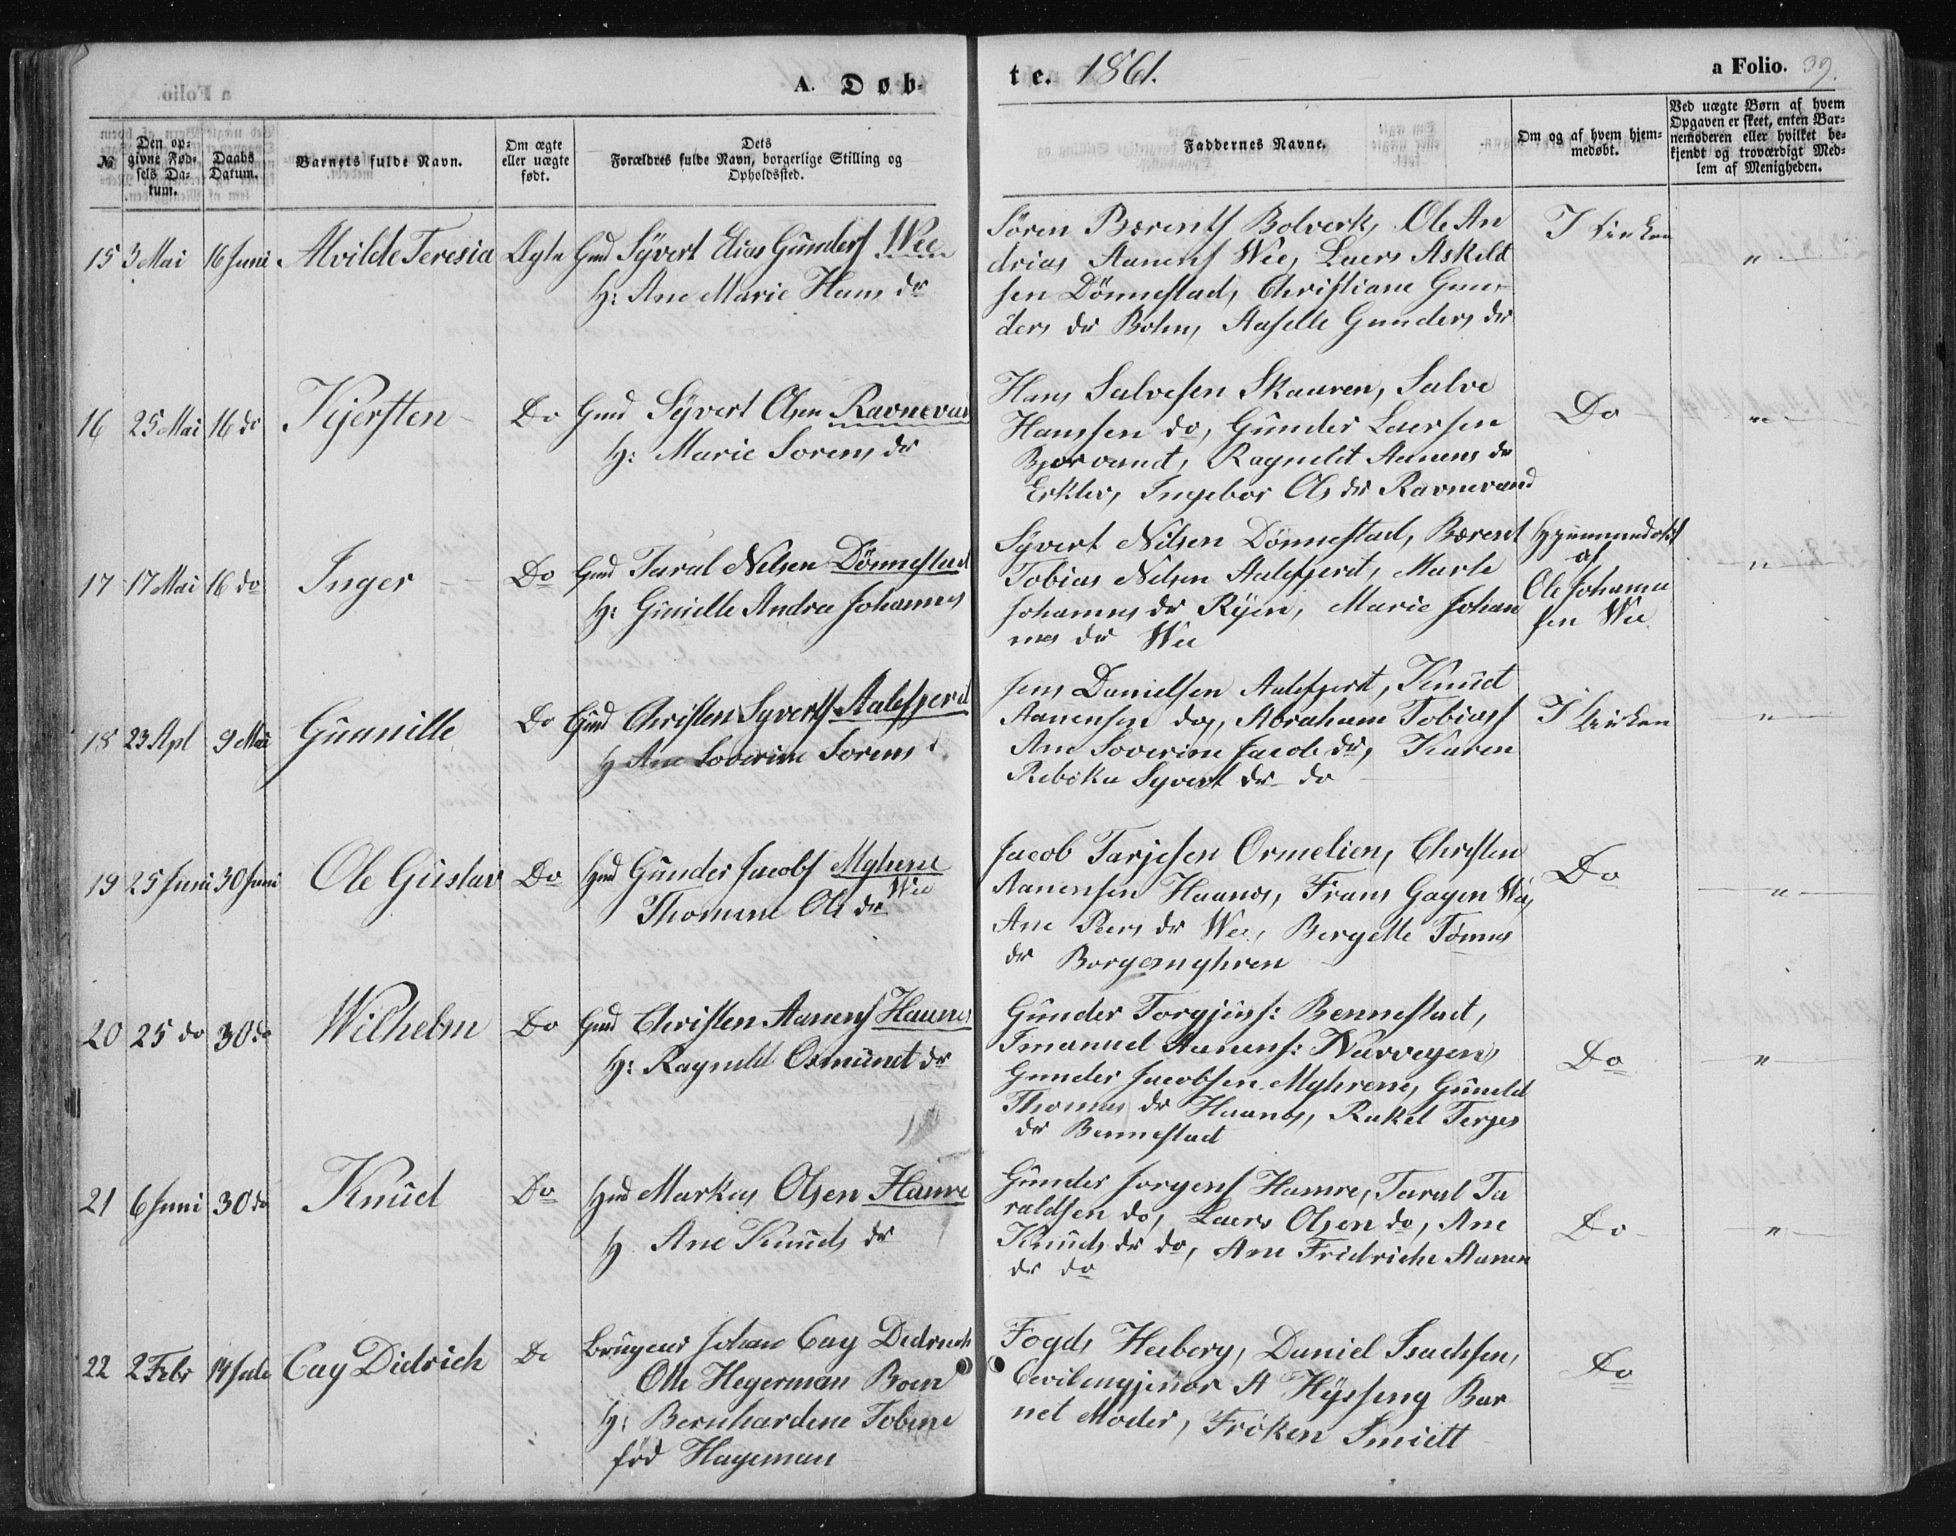 A. Døb-
te. 1861.
a Folio. 39.
№
Den opgivne Fødsels Datum.
Daabs Datum.
Barnets fulde Navn.
Om ægte eller uægte født.
Dets Forældres fulde Navn, borgerlige Stilling og Opholdssted.
Faddernes Navne.
Om og af hvem hjemmedøbt.
Ved uægte Børn af hvem Opgaven er skeet, enten Barnemoderen eller hvilket bekjendt og troværdigt Medlem af Menigheden.
15 3 Mai 16 Juni Alvilde Teresia Ægte Gmd Syvert Elias Gunders Wee
H: Ane Marie Hans dr
Søren Bærents Bolverk, Ole An
drias Aanens Wee, Laers Askild
sen Dönnestad, Christiane Gun
ders dr Boen, Aaselle Gunders dr
I Kirken
"
16 25 Mai 16 do Kjersten Do Gmd Syvert Olsen Ravnevan
H: Marie Sorens dr
Hans Salvesen Skaaren, Salve
Hanssen do, Gunder Laersen
Bjorvand, Ragnild Aanens dr
Erklev, Ingebor Ols dr Ravnevand
Do
"
17 17 Mai 16 do Inger Do Gmd Taral Nilsen Dönnestad
H: Gunille Andrea Johannes
Syvert Nilsen Dönnestad, Bærent
Tobias Nilsen Aalefjerd, Marte
Johannes dr Ryen, Marie Johan
nes dr Wee
Hjemmedøbt
af
Ole Johanne
sen Wee
"
18 23 Apl 9 Mai Gunnille Do Gmd Christen Syverts Aalefjerd
H Ane Soverine Sorens d
Jens Danielsen Aalefjerd, Knud
Aanensen do, Abraham Tobiass
Ane Soverine Jacobs dr, Karen
Rebeka Syvert dr do
I Kirken
"
19 25 Juni 30 Juni Ole Gustav Do Hmd Gunder Jacobs Myhrene
Wee
Thomine Ols dr
Jacob Tarjesen Ormelien, Christen
Aanensen Haanes, Frans Gagen Wee,
Ane Peers dr Wee, Bergette Tönnes
dr Borgemyhren
Do
"
20 25 do 30 do Wilhelm Do Gmd Christen Aanens Haanes
H: Ragnild Osmund dr
Gunder Torgjuss: Bennestad,
Imanuel Aanens: Narvegen,
Gunder Jacobsen Myhrene, Gunild
Thomas dr Haanes, Rakel Terjes
dr Bennestad
Do
"
21 6 Juni 30 do Knud Do Hmd Markus Olsen Hamre
H Ane Knuds dr
Gunder Jorgens Hamre, Taral Ta
raldsen do, Laers Olsen do, Ane
Knuds dr do, Ane Fridriche Aanen
dr do
Do
"
22 2 Febr 14 Jule Cay Didrich Do Brugeier Johan Cay Didrich
Otte Hegerman Boen
H: Bernhardene Tobine
fød Hageman
Fogd Heiberg, Daniel Isachsen,
Civilengjenør A Hysseng Bar
net Moder, Fröken Smidt
Do